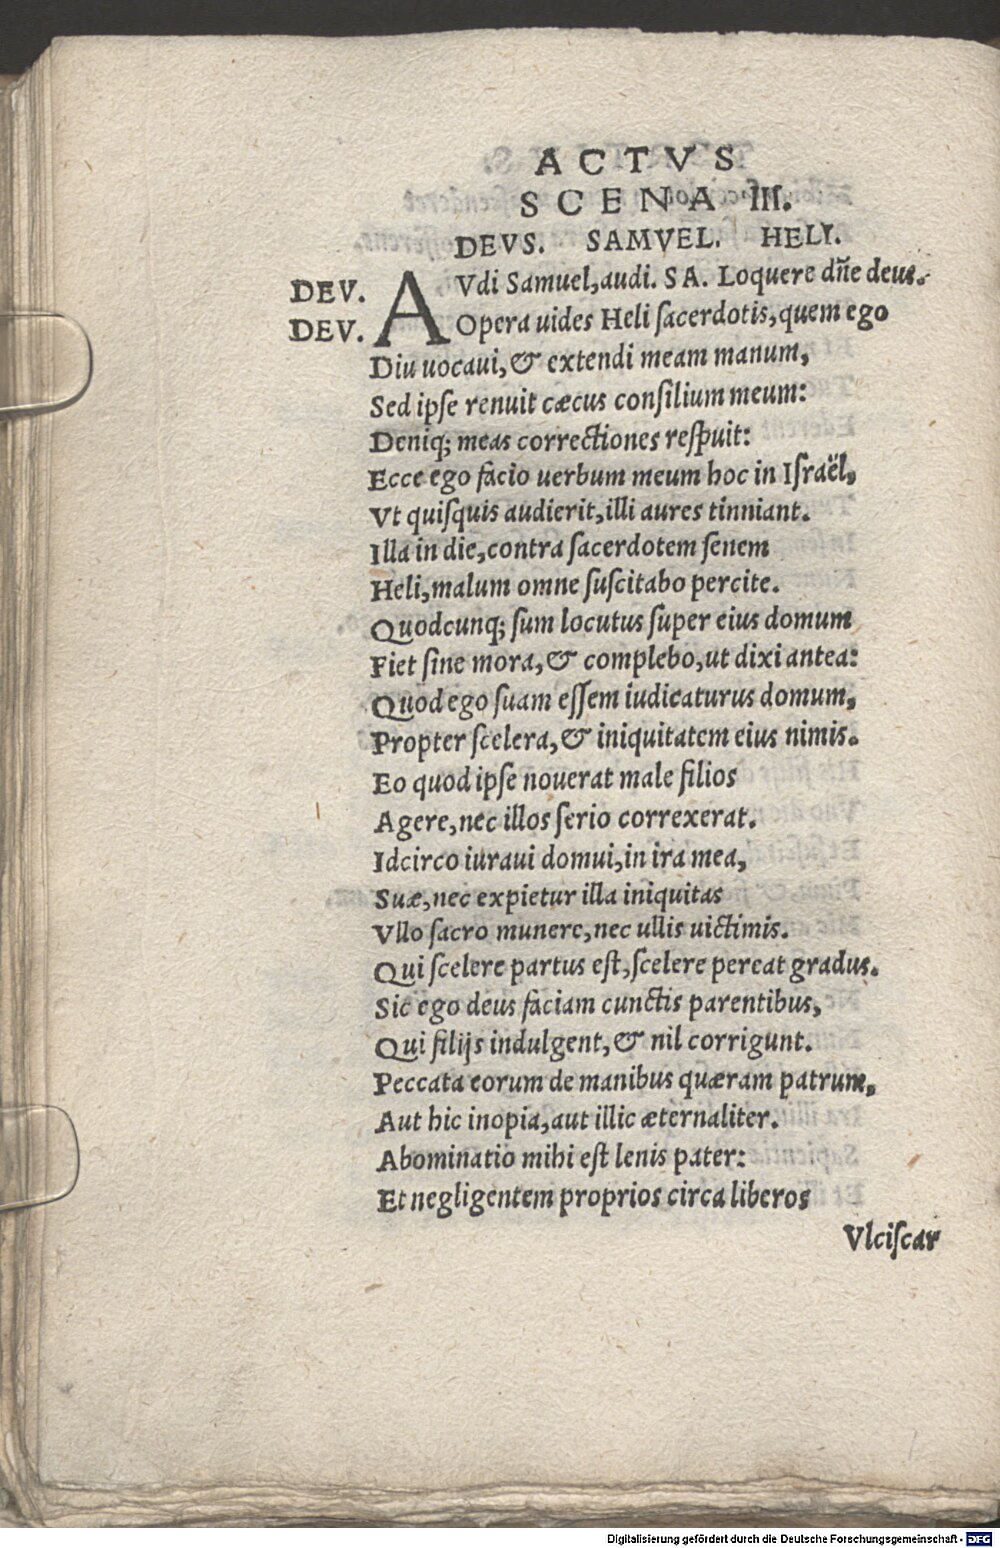 ACTVS
SCENA III.
DEVS. SAMVEL. HELI.
DEV. AVdi Samuel, audi. SA. Loquere dñe deus.
DEV. Opera uides Heli ſacerdotis, quem ego
Diu uocaui, & extendi meam manum,
Sed ipſe renuit cæcus conſilium meum:
Deniq; meas correctiones reſpuit:
Ecce ego facio uerbum meum hoc in Iſraël,
Vt quiſquis audierit, illi aures tinniant.
Illa in die, contra ſacerdotem ſenem
Heli, malum omne ſuſcitabo percite.
Quodcunq; ſum locutus ſuper eius domum
Fiet ſine mora, & complebo, ut dixi antea:
Quod ego ſuam eſſem iudicaturus domum,
Propter ſcelera, & iniquitatem eius nimis.
Eo quod ipſe nouerat male filios
Agere, nec illos ſerio correxerat.
Idcirco iuraui domui, in ira mea,
Suæ, nec expietur illa iniquitas
Vllo ſacro munere, nec ullis uictimis.
Qui ſcelere partus eſt, ſcelere pereat gradus.
Sic ego deus faciam cunctis parentibus,
Qui filijs indulgent, & nil corrigunt.
Peccata eorum de manibus quæram patrum,
Aut hic inopia, aut illic æternaliter.
Abominatio mihi eſt lenis pater:
Et negligentem proprios circa liberos
Vlciſcar
Digitalisierung gefördert durch die Deutsche Forschungsgemeinschaft - DFG